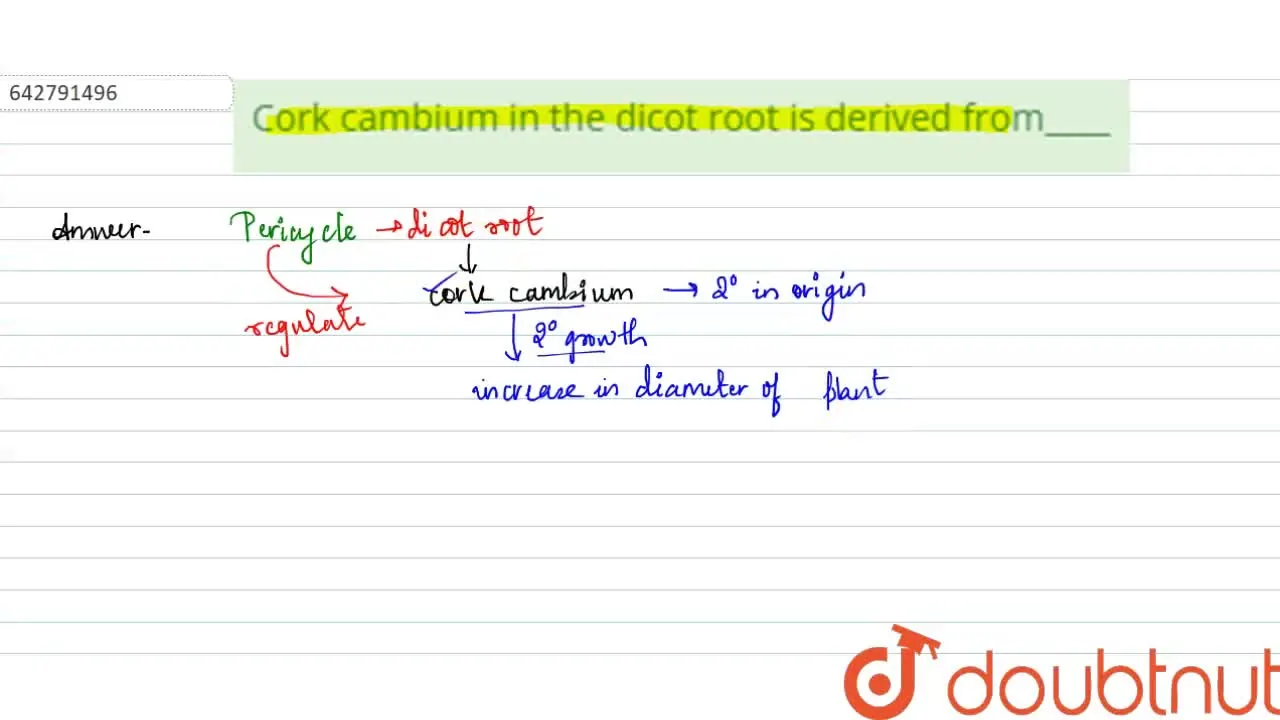 642791496
Cork cambium in the dicot root is derived from____
Answer- Pericycle → dicot root
↓
cork cambium → 2° in origin
regulate
↓ 2° growth
increase in diameter of plant
doubtnut